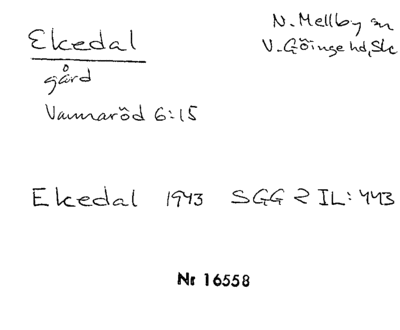 Ekedal
N. Mellby sn
V. Göinge hd, Sk
gård
Vannaröd 6:15
Ekedal 1943 SGG 2 IL: 443
Nr 16558